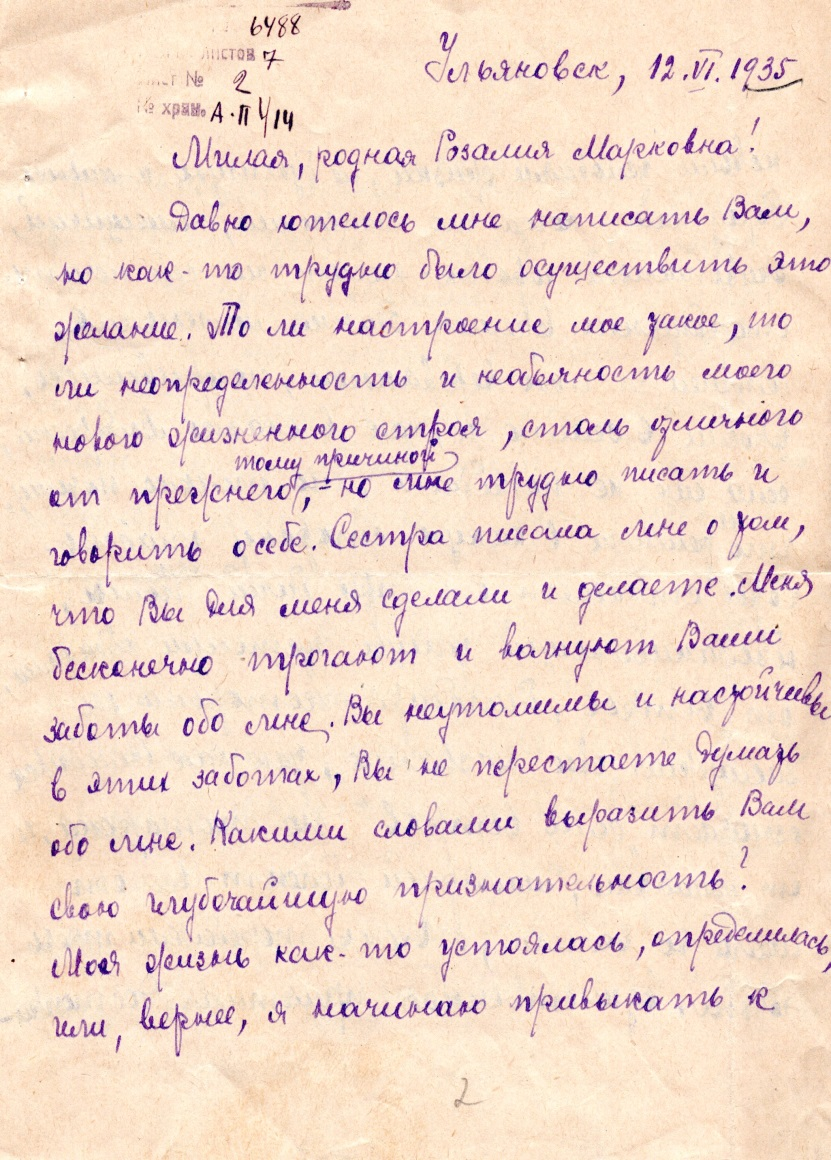 6488
листов 7
лист № 2
№ хран. А-П 4/14
Ульяновск, 12.VI.1935
Милая, родная Розалия Марковна!
Давно хотелось мне написать Вам,
но как-то трудно было осуществить это
желание. То ли настроение мое такое, то
ли неопределенность и необычность моего
нового жизненного строя, столь отличного
тому причиной
от прежнего, – но мне трудно писать и
говорить о себе. Сестра писала мне о том,
что Вы для меня сделали и делаете. Меня
бесконечно трогают и волнуют Ваши
заботы обо мне. Вы неутомимы и настойчивы
в этих заботах, Вы не перестаете думать
обо мне. Какими словами выразить Вам
свою глубочайшую признательность?
Моя жизнь как-то устоялась, определилась,
или, вернее, я начинаю привыкать к
2